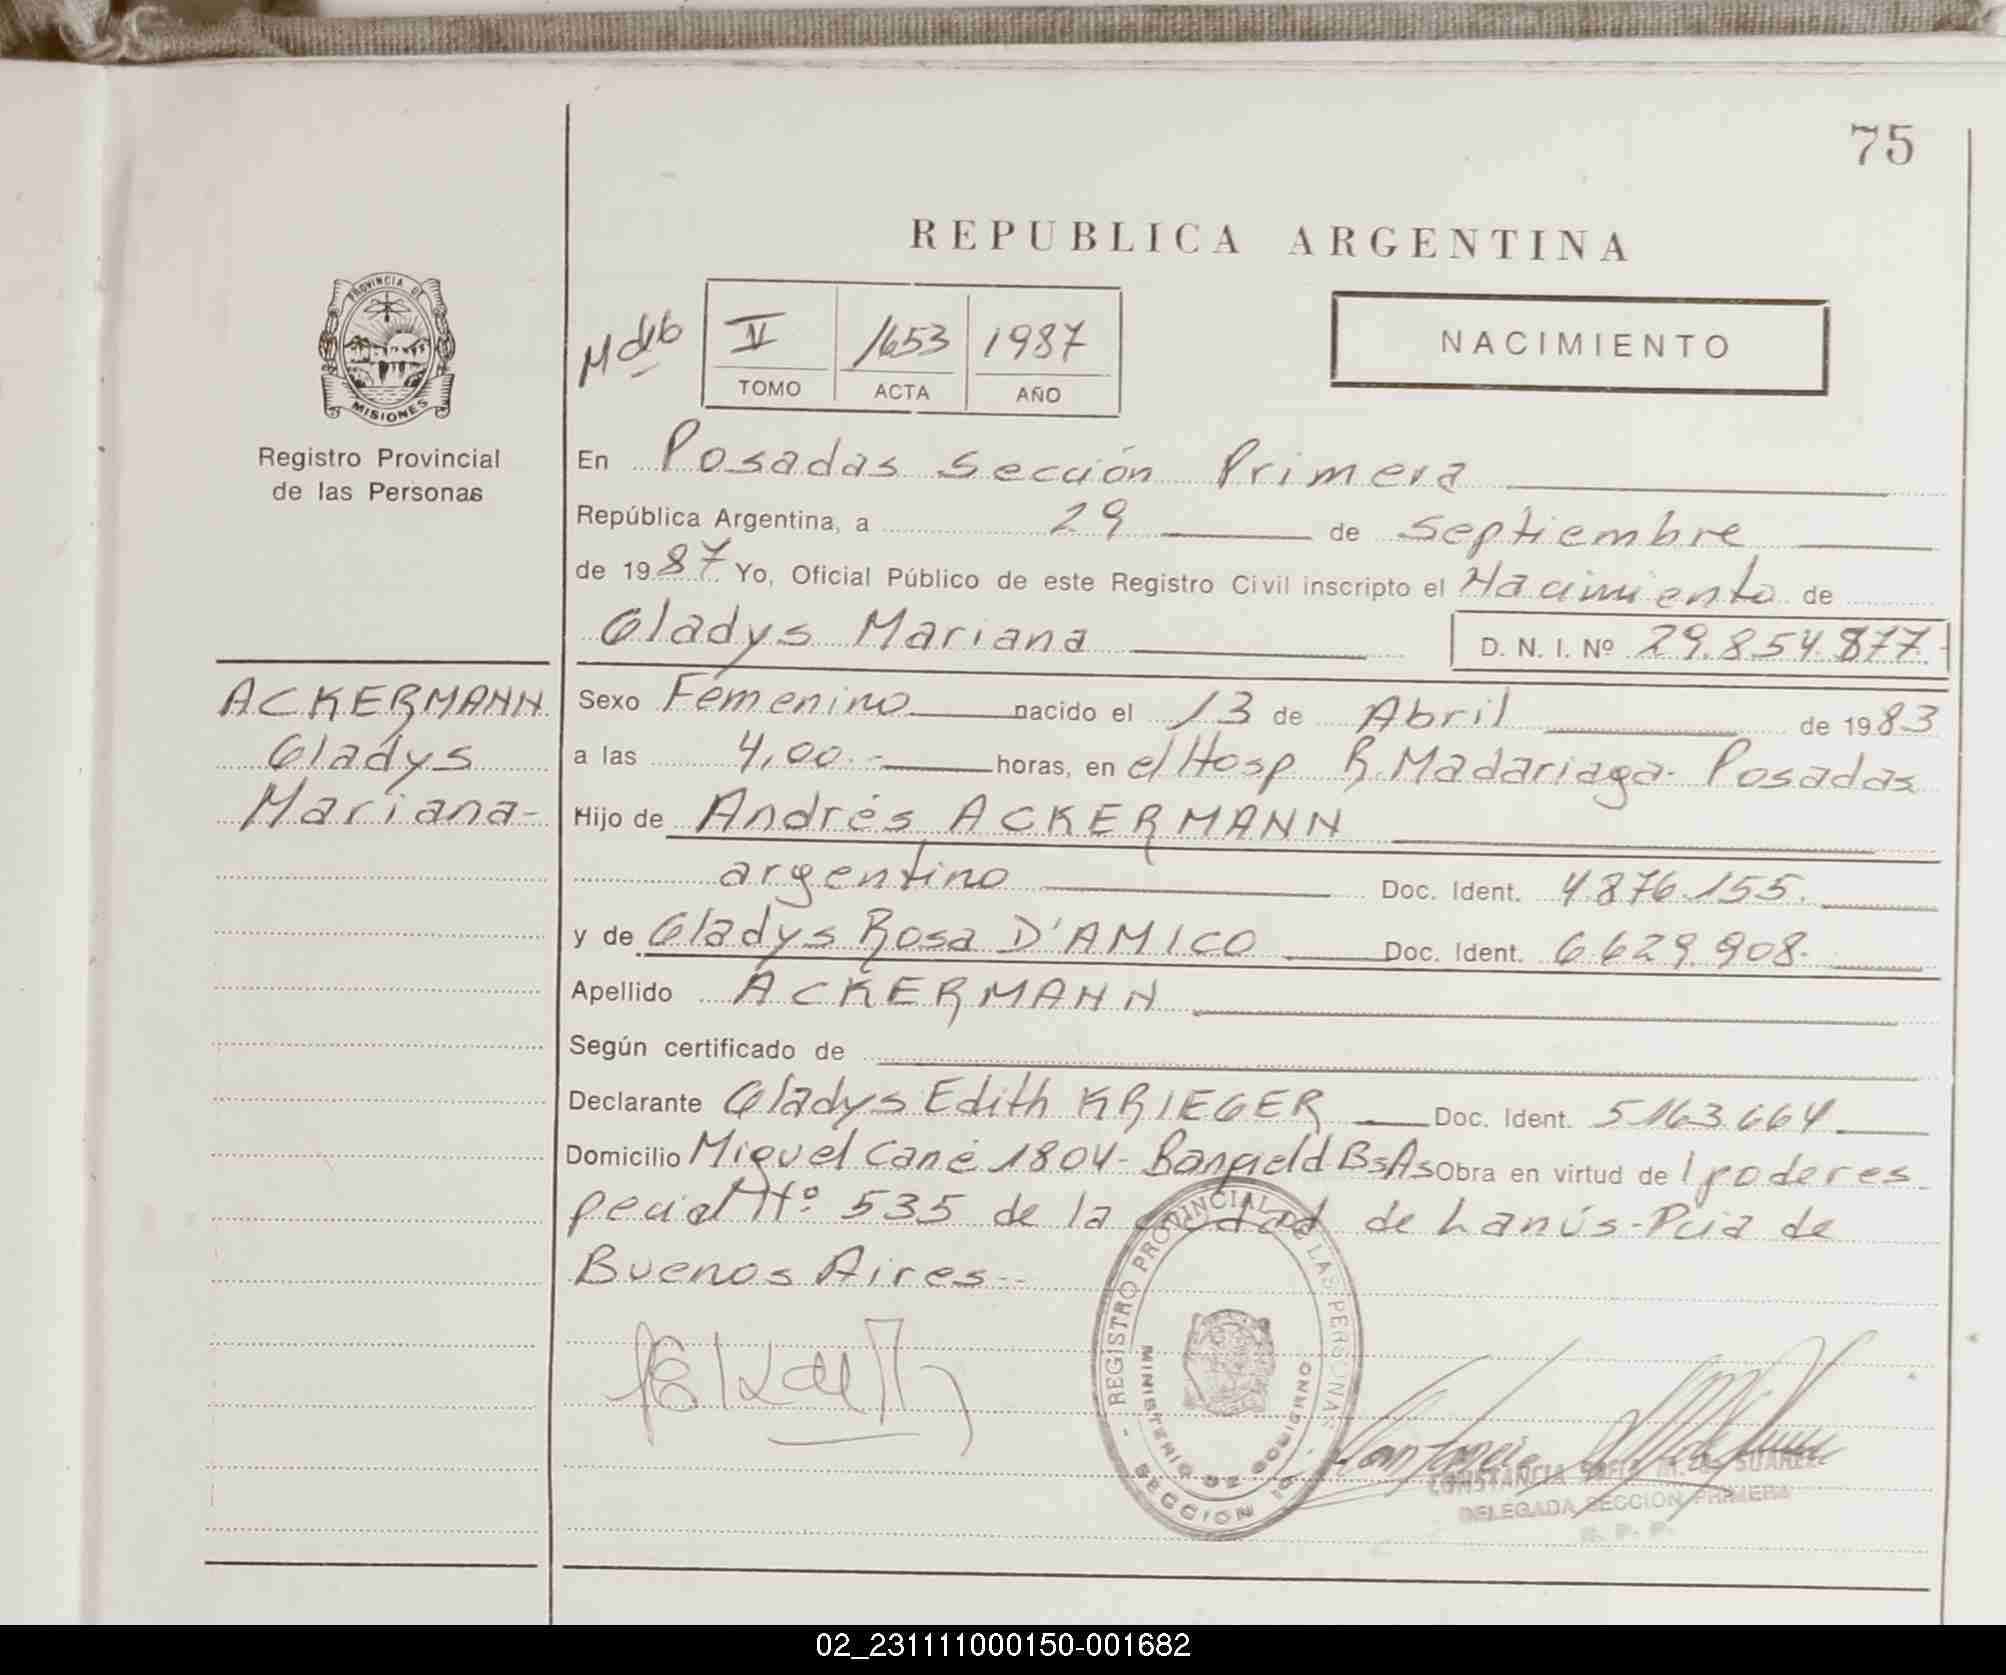 75
REPUBLICA ARGENTINA
PROVINCIA DE
MISIONES
Registro Provincial
de las Personas
II 1653 1987
TOMO ACTA AÑO
NACIMIENTO
En Posadas Sección Primera
República Argentina, a 29 de Septiembre
de 1987 Yo, Oficial Público de este Registro Civil inscripto el Nacimiento de
Gladys Mariana D. N. I. Nº 29.854.877.-
ACKERMANN
Gladys
Mariana-
Sexo Femenino nacido el 13 de Abril de 1983
a las 4,00.- horas, en el Hosp R. Madariaga. Posadas
Hijo de Andrés ACKERMANN
argentino Doc. Ident. 4.876.155.
y de Gladys Rosa D'AMICO Doc. Ident. 6.629.908.
Apellido ACKERMANN
Según certificado de
Declarante Gladys Edith KRIEGER Doc. Ident. 5163.664
Domicilio Miguel Cané 1804- Banfield BsAs Obra en virtud de 1 poder es
pecial Nº 535 de la ciudad de Lanús-Pcia de
Buenos Aires--
REGISTRO PROVINCIAL DE LAS PERSONAS
MINISTERIO DE GOBIERNO
SECCION 1a
CONSTANCIA M. DE SUAREZ
DELEGADA SECCION PRIMERA
R. P. P.
02_231111000150-001682